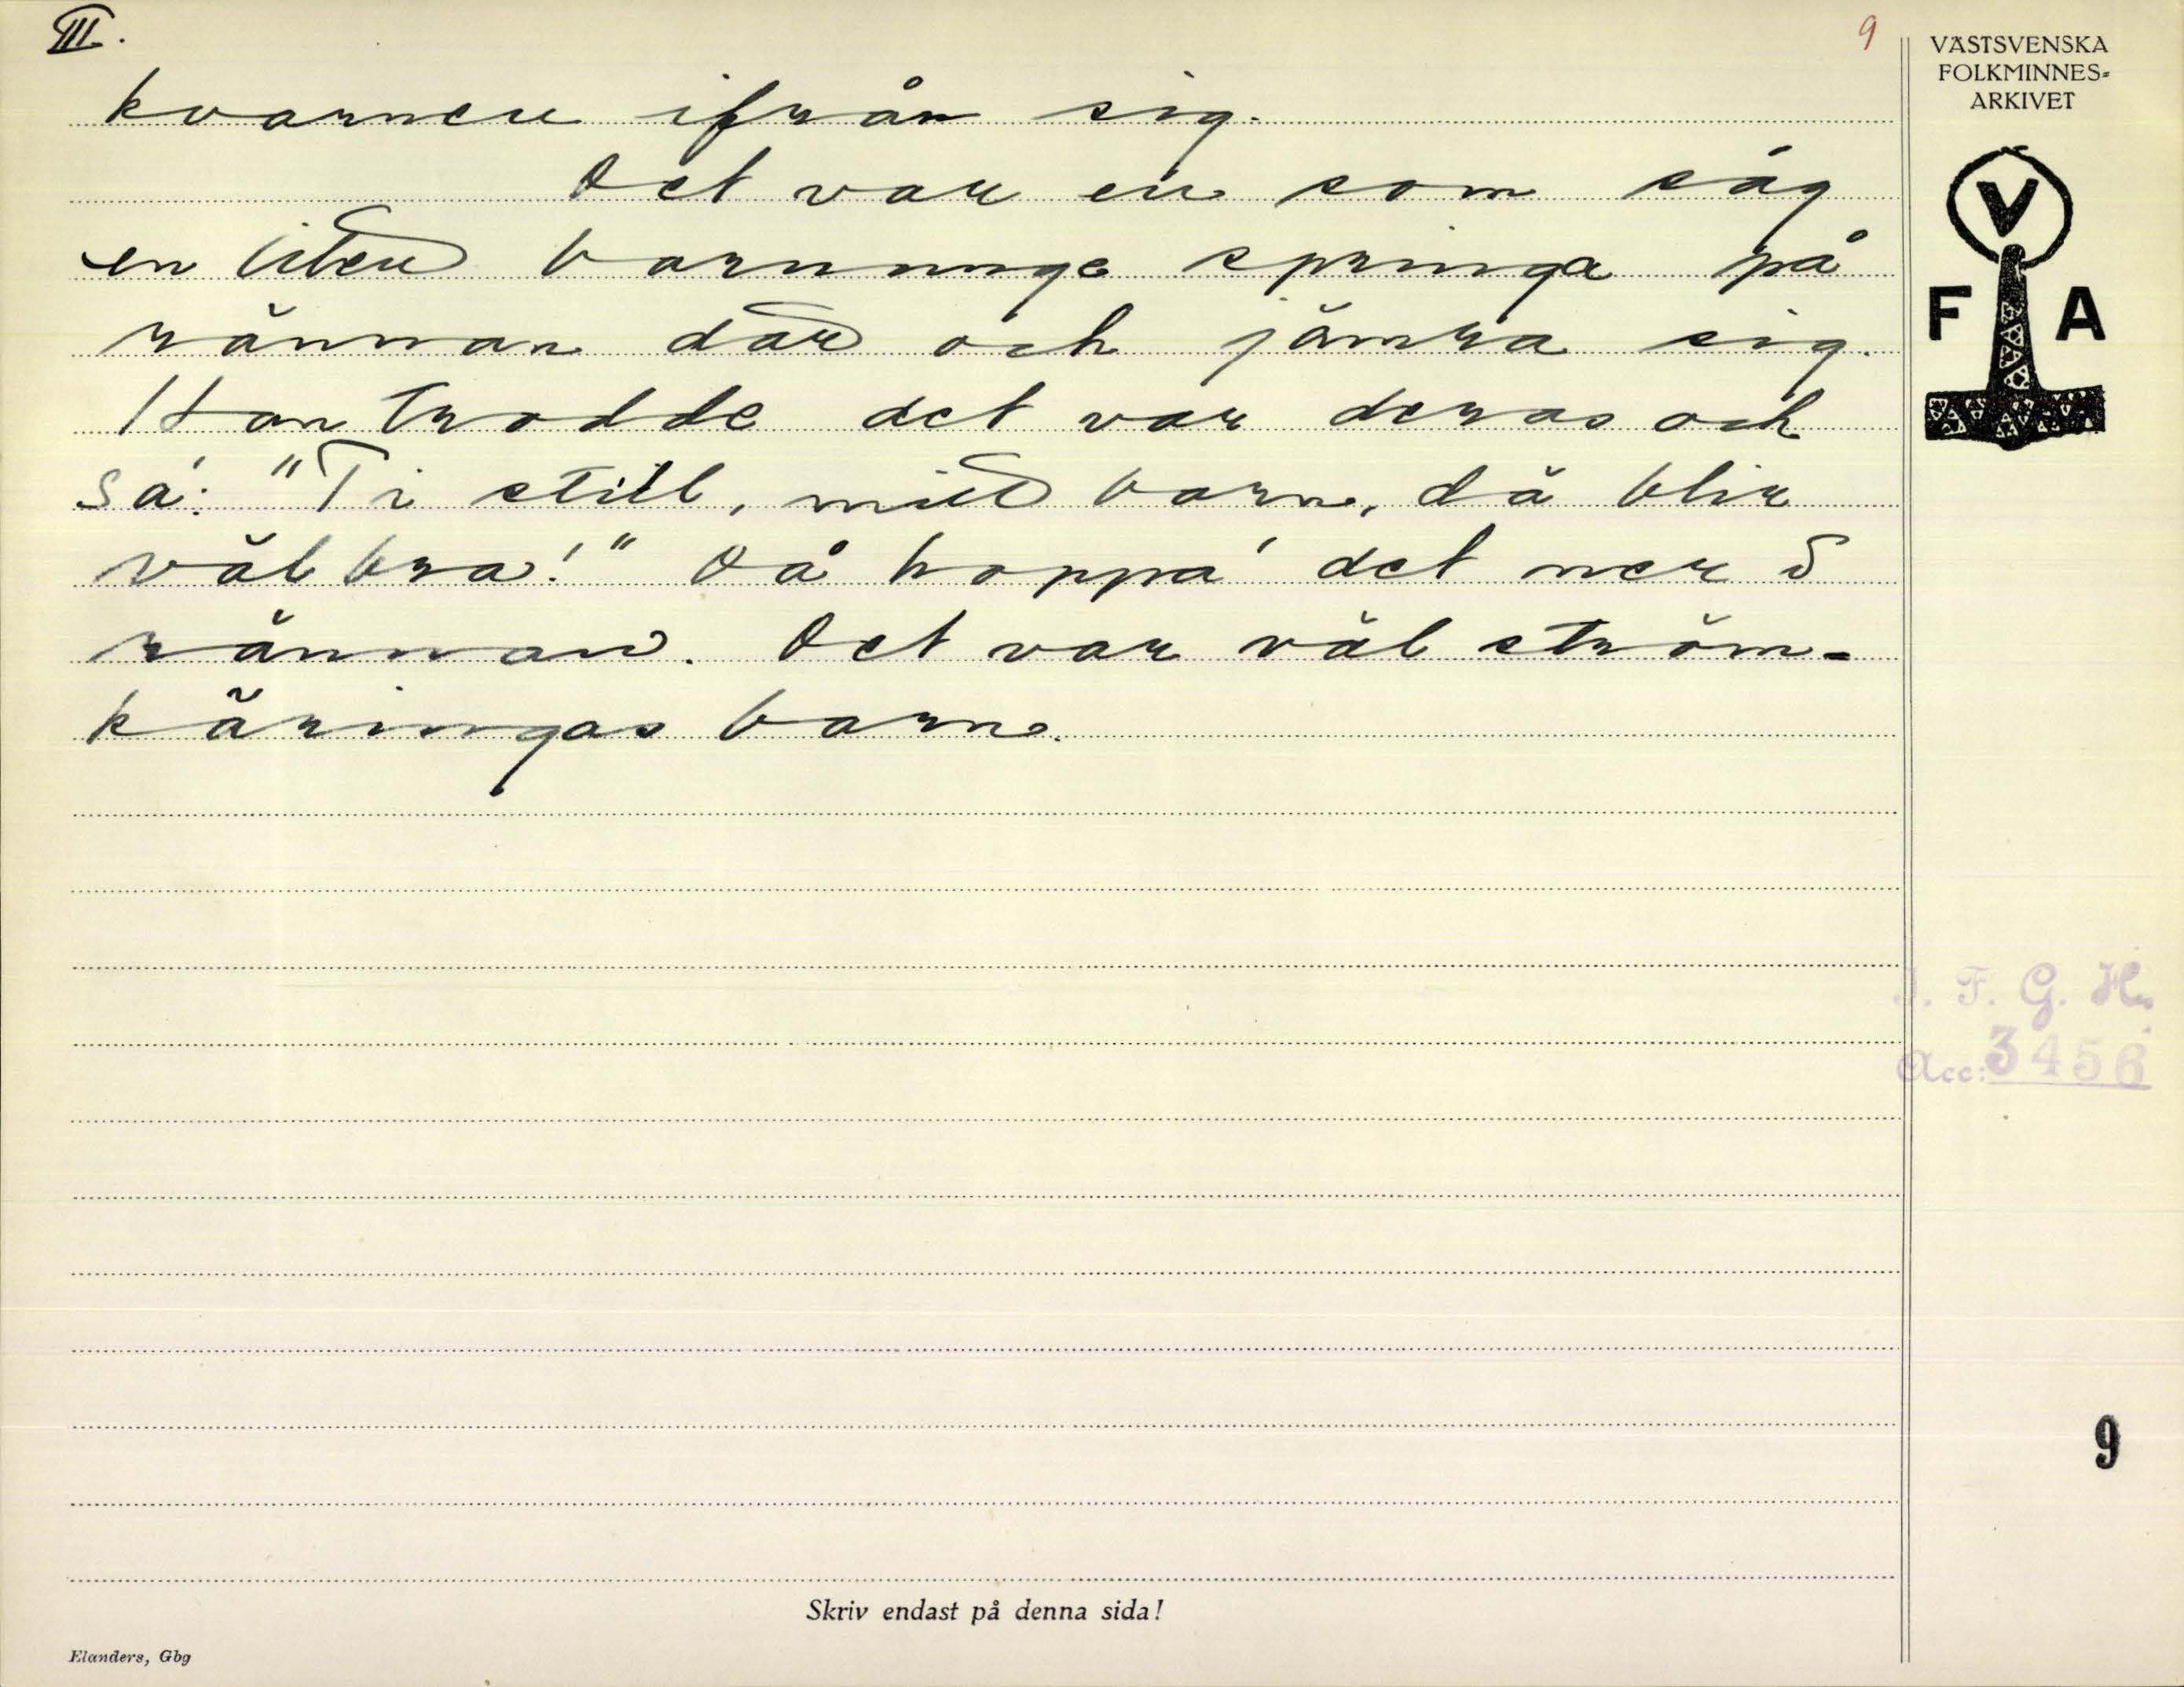 III.
9
kvarnen ifrån sig.
Det var en som såg
en liten barnunge springa på
rännan där och jämra sig.
Han trodde det var deras och
sa': "Ti still, mitt barn, dä blir
väl bra!" Då hoppa' det ner i
rännan. Det var väl ström-
käringas barn.
VÄSTSVENSKA
FOLKMINNES-
ARKIVET
V
F A
I. F. G. H.
Acc: 3456
9
Skriv endast på denna sida!
Elanders, Gbg